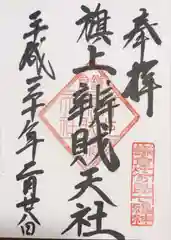 奉拝
旗上辨財天社
平成三十年二月廿八日